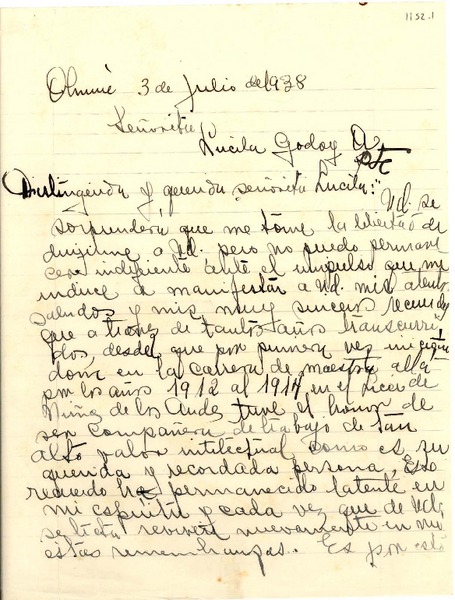 1152.1
Olmué 3 de Julio del 1938
Señorita
Lucila Godoy A.
pte
Distinguida y querida señorita Lucila:
Ud. se
sorprenderá que me tome la libertad de
dirijirme a Ud. pero no puedo permane
cer indiferente ante el impulso que me
induce a manifestar a Ud. mis atentos
saludos y mis muy sinceros recuerdos
que a travez de tantos años transcurri
dos, desde que por primera vez inician
dome en la carrera de maestra allá
por los años 1912 al 1914 en el Liceo de
Niñas de los Andes tuve el honor de
ser compañera de trabajo de tan
alto valor intelectual como es su
querida y recordada persona, Ese
recuerdo ha permanecido latente en
mi espíritu y cada vez que de Ud.
se trata reviven nuevamente en mi
estas remembranzas. Es por esto